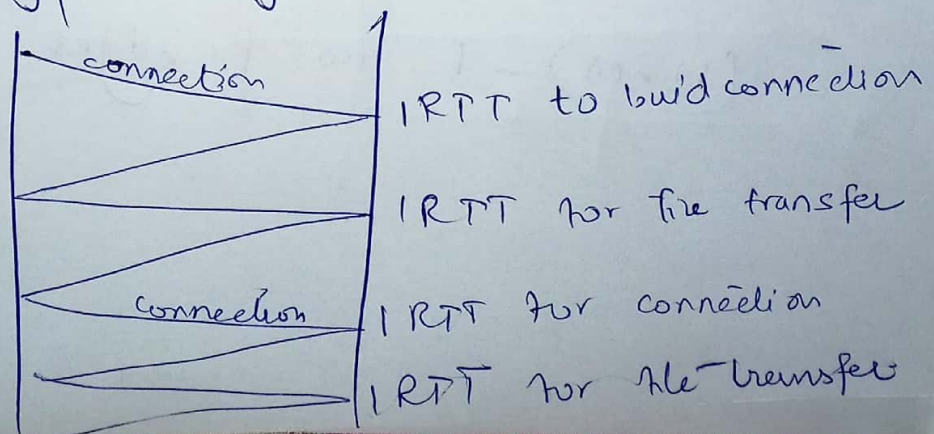 connection
1 RTT to buid connection
1 RTT for file transfer
connection
1 RTT for connection
1 RTT for file-transfer